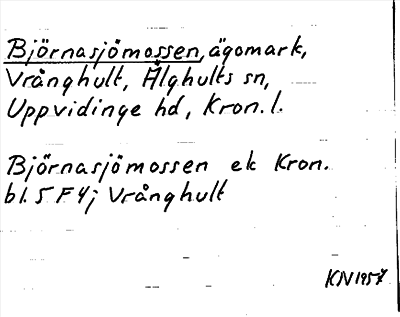 Björnasjömossen, ägomark,
Vrånghult, Älghults sn,
Uppvidinge hd, Kron. l.
Björnasjömossen ek Kron.
bl. 5 F 4j Vrånghult
KN 1957